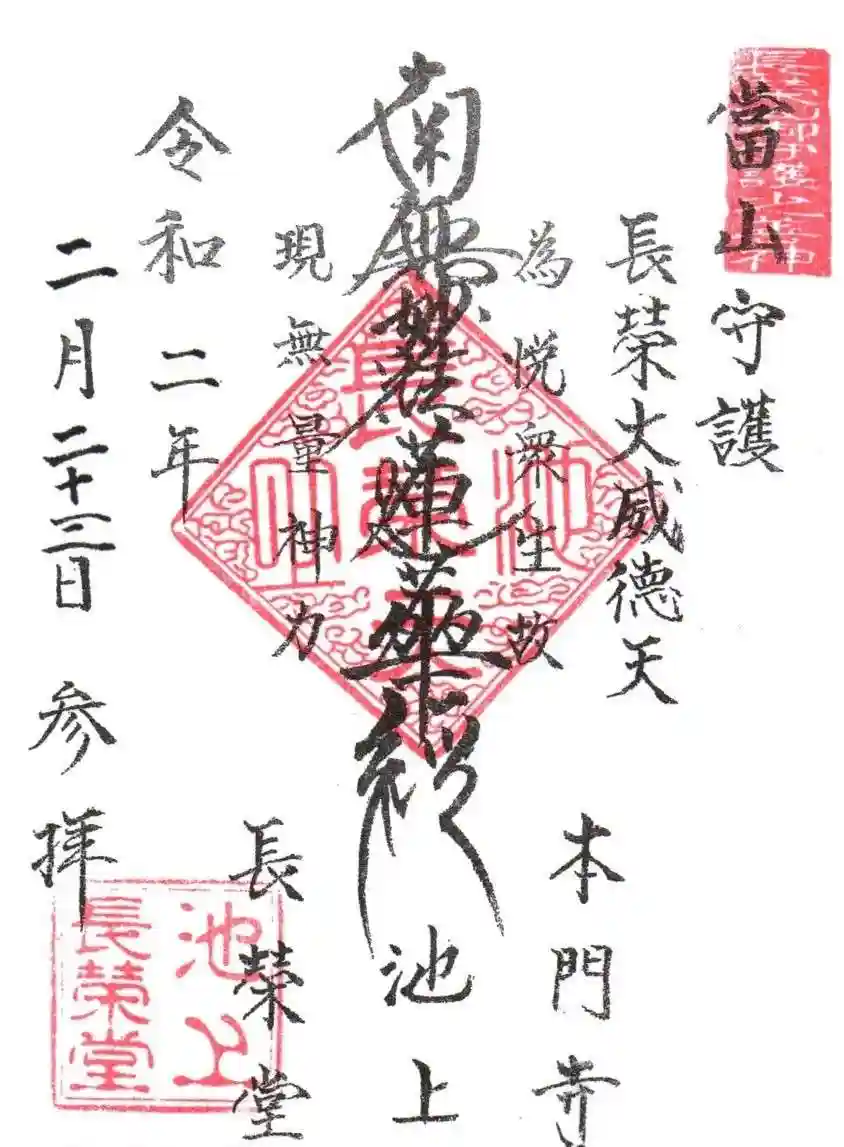 當山守護
長榮大威德天
為悦衆生故
南無妙法蓮華経
現無量神力
令和二年
二月二十三日 参拝
本門寺
池上
長榮堂
池上
長榮堂